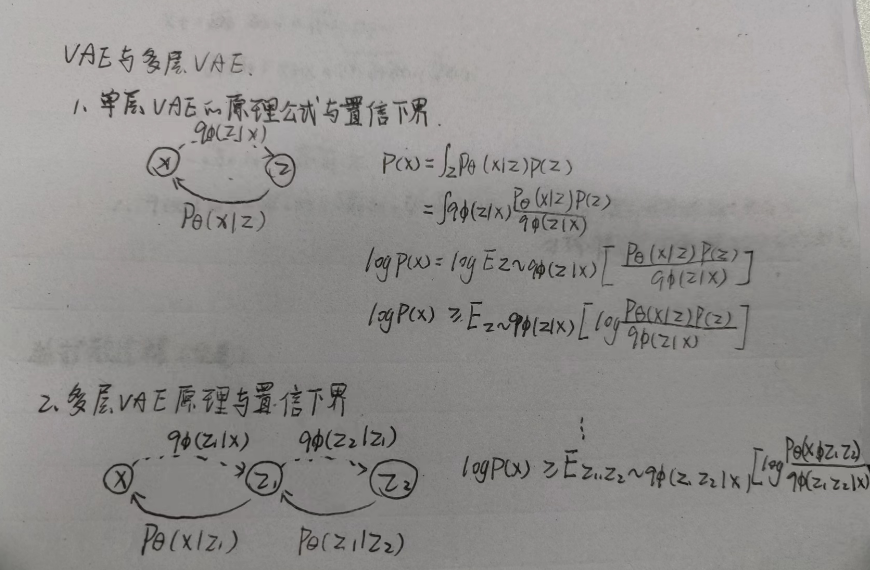 VAE与多层VAE.
1、单层VAE的原理公式与置信下界.
qφ(z|x)
x
z
Pθ(x|z)
P(x)=∫z Pθ(x|z)P(z)
=∫qφ(z|x) Pθ(x|z)P(z) / qφ(z|x)
logP(x)=log E z~qφ(z|x)[Pθ(x|z)P(z) / qφ(z|x)]
logP(x) ≥ E z~qφ(z|x)[log Pθ(x|z)P(z) / qφ(z|x)]
2、多层VAE原理与置信下界
qφ(z₁|x) qφ(z₂|z₁)
x
z₁
z₂
Pθ(x|z₁) Pθ(z₁|z₂)
⋮
logP(x) ≥ E z₁,z₂~qφ(z₁z₂|x)[log Pθ(x,z₁z₂) / qφ(z₁z₂|x)